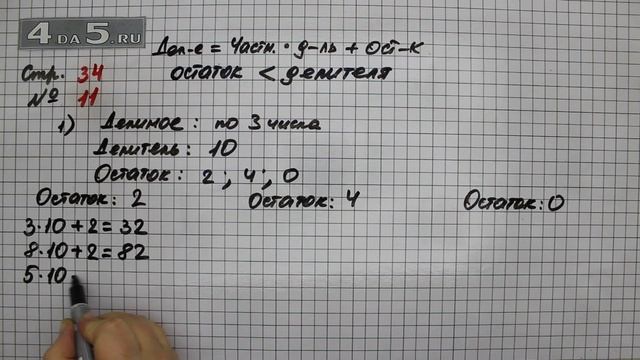 4DA5.RU
Дел-е = Частн. · д-ль + Ост-к
Стр. 34 остаток < делителя
№ 11
1) Делимое : по 3 числа
Делитель : 10
Остаток : 2 ; 4 ; 0
Остаток : 2 Остаток : 4 Остаток : 0
3·10+2=32
8·10+2=82
5·10